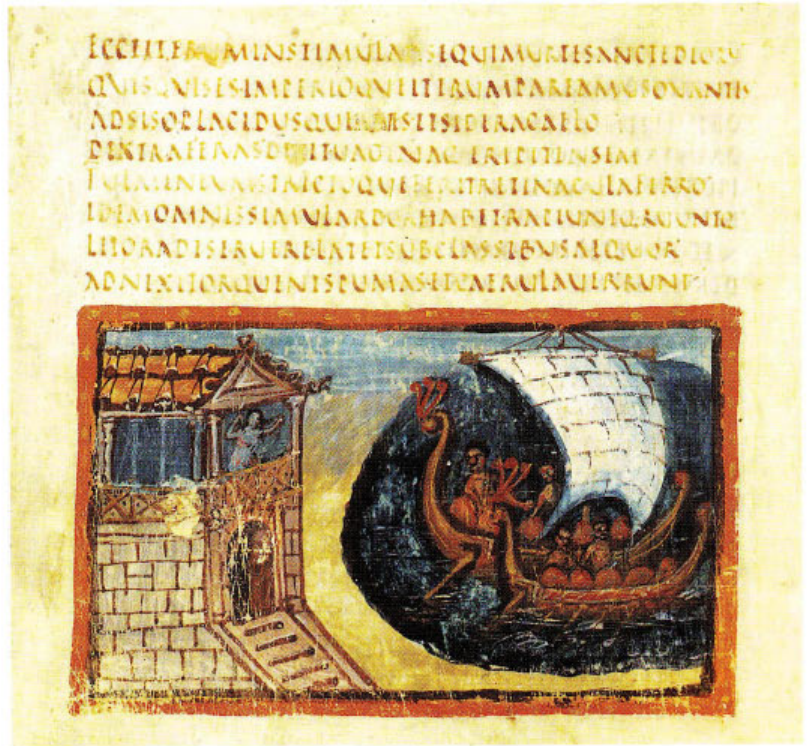 ECCEITERUMINSTIMULAT SEQUIMURTESANCTEDEORU
QUISQUISESIMPERIOQUEITERUMPAREAMUSOVANTIS
ADSISOPLACIDUSQUEIUVES·ETSIDERACAELO
DEXTRAFERAS·DIXITVAGINAQ·ERIPITENSEM
FULMINEUMSTRICTOQUEFERITRETINACULAFERRO
IDEMOMNISSIMULARDORHABETRAPIUNTQ·RUUNTQ
LITORADESERUERELATETSUBCLASSIBUSAEQUOR
ADNIXITORQUENTSPUMAS·ETCAERULAVERRUNT